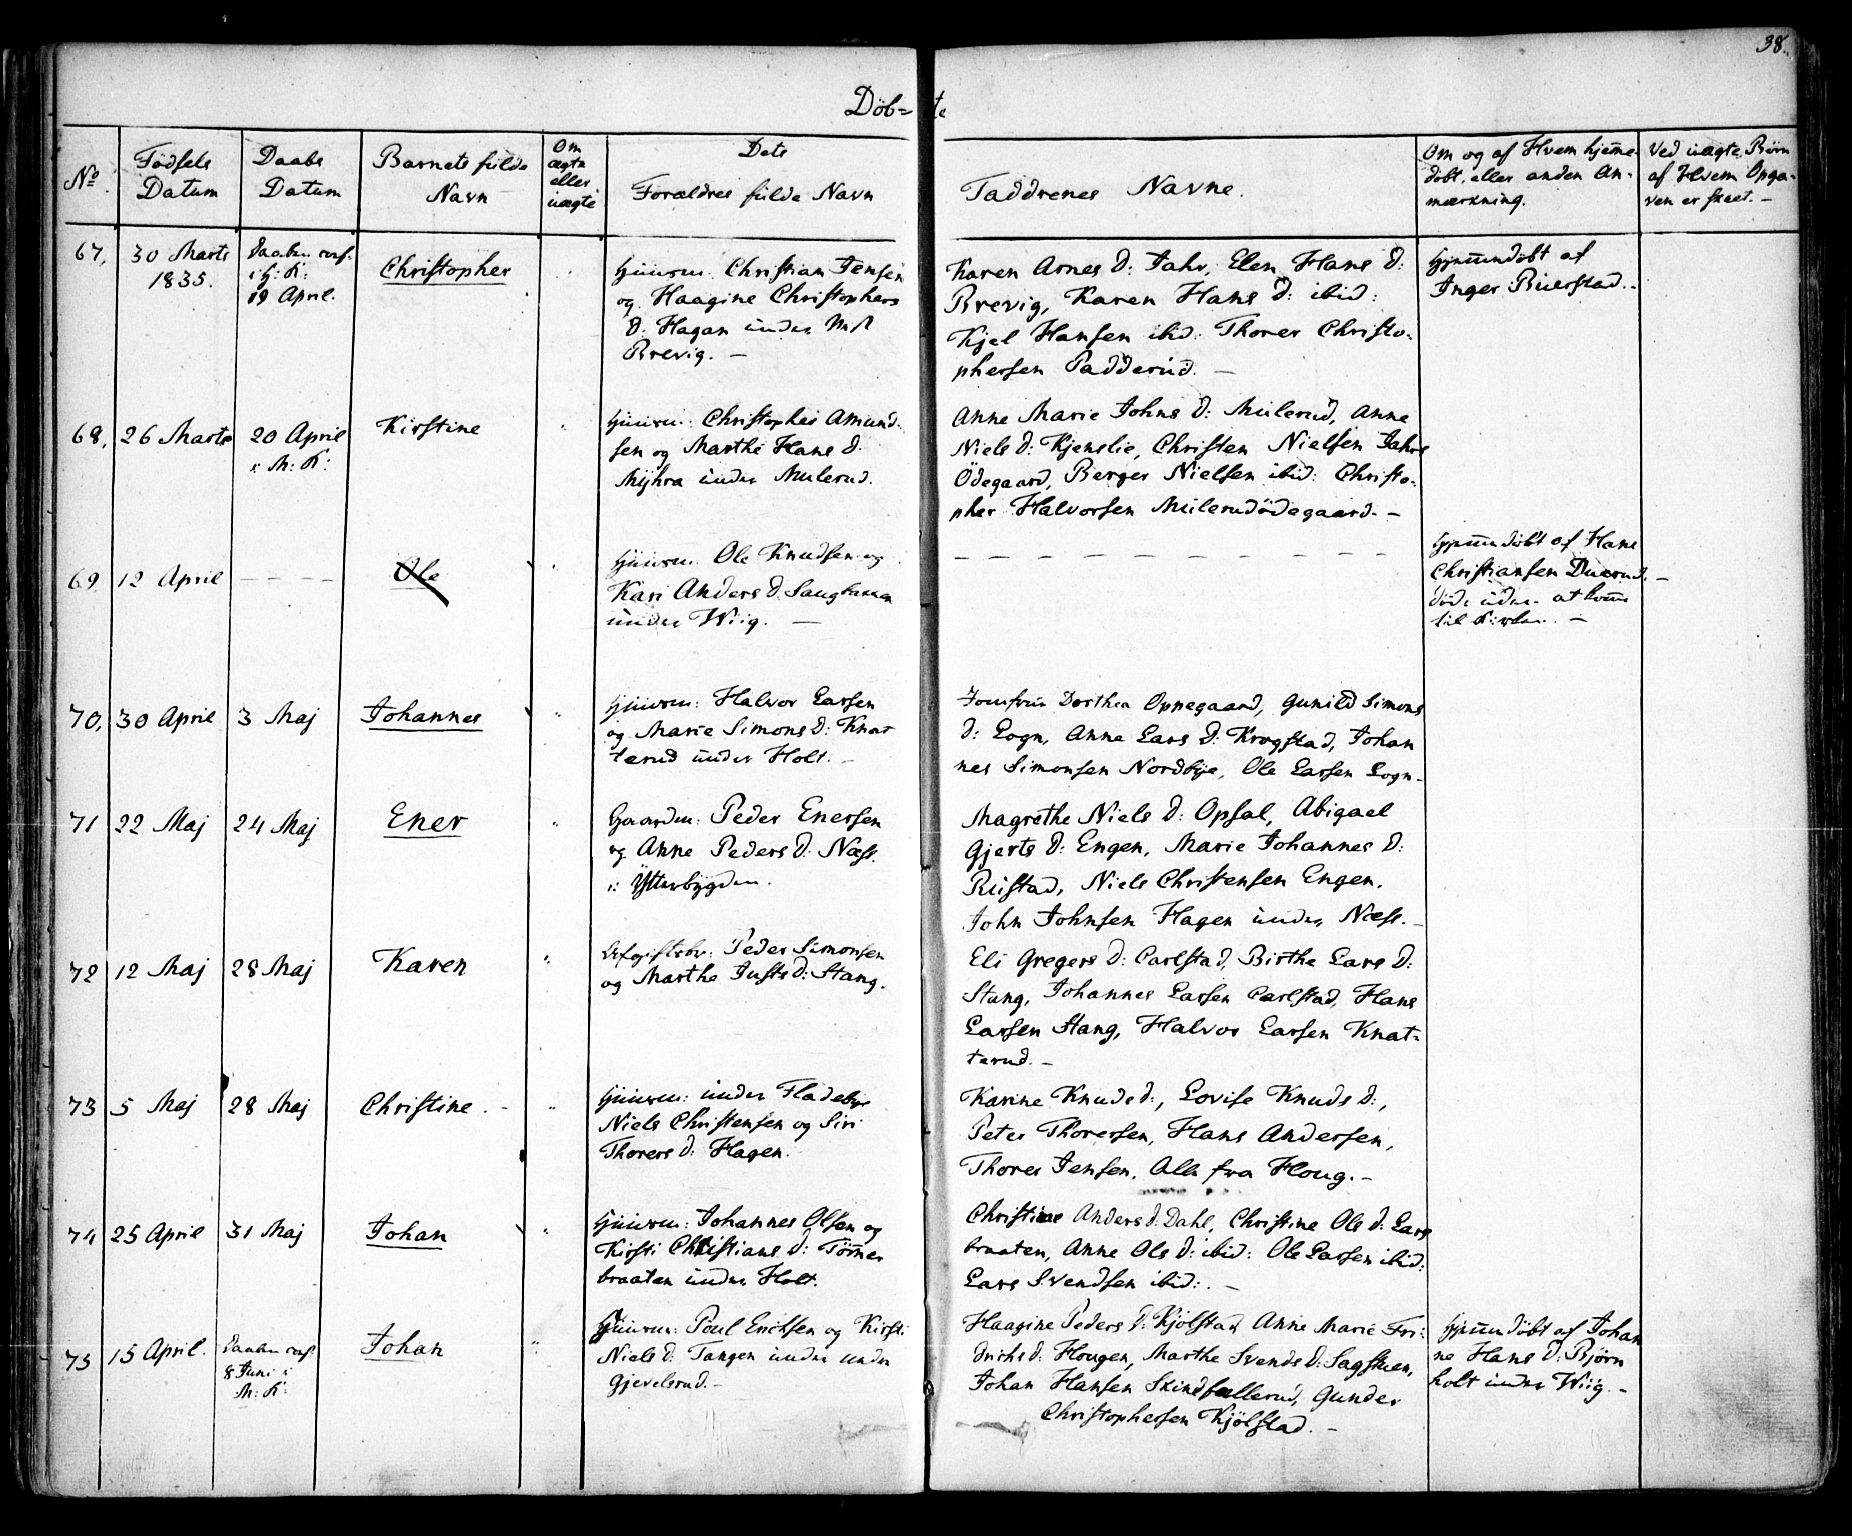 38.
Döb= te
No
Födsels
Datum
Daabs
Datum
Barnets fulde
Navn
Om
ægte
eller
uægte
Dets
Forældres fulde Navn
Faddrenes Navne.
Om og af Hvem hjemme-
döbt, eller anden An-
mærkning.
Ved uægte Börn
af Hvem Opga-
ven er skeet. –
67,
30 Marts
1835.
Daaben conf.
i H: K:
19 April.
Christopher
Huusm: Christian Jensen
og Haagine Christophers
d: Hagan under
Brevig. –
Karen Arnes d: Jahr, Elen Hans d:
Brevig, Karen Hans d: ibid:
Kjel Hansen ibid: Thorer Christo-
phersen Padderud. –
Hjemmedöbt af
Inger Buerstad. –
68,
26 Marts
20 April
i M: K:
Kirstine
Huusm: Christopher Amund-
sen og Marthe Hans d:
Myhra under Mulerud.
Anne Marie Johns d: Mulerud, Anne
Niels d: Kjenslie, Christen Nielsen Jahrs
Ödegaard, Berger Nielsen ibid: Christo-
pher Halvorsen Mulerudödegaard. –
69
12 April
– – – –
Ole
Huusm: Ole Knudsen og
Kari Anders d: Saugbakken
under Wiig. –
– – – – – – – – – – –
Hjemmedöbt af Hans
Christiansen Duerud. –
döde uden at komme
til Kirken. –
70,
30 April
3 Maj
Johannes
Huusm: Halvor Larsen
og Marie Simons d: Knat-
terud under Holt. –
Jomfrue Dorthea Opnegaard, Gunild Simons
d: Sogn, Anne Lars d: Krogstad, Johan-
nes Simonsen Nordbye, Ole Larsen Sogn –
71
22 Maj
24 Maj
Ener
Gaardm: Peder Enersen
og Anne Peders d: Næss
i Ytterbygden.
Magrethe Niels d: Opsal, Abigael
Gjerts d: Engen, Marie Johannes d:
Rustad, Niels Christensen Engen,
John Johnsen Hagen under Næss. –
72
12 Maj
28 Maj
Karen
Peder Simonsen
og Marthe Justs d: Stang.
Eli Gregers d: Carlstad, Birthe Lars d:
Stang, Johannes Larsen Carlstad, Hans
Larsen Stang, Halvor Larsen Knat-
terud. –
73
5 Maj
28 Maj
Christine. –
Huusm: under Fladebye
Niels Christensen og Siri
Thorers d: Hagen.
Karine Knuds d:, Lovise Knuds d:,
Peter Thoresen, Hans Andersen,
Thorer Jensen, Alle fra Houg. –
74
25 April
31 Maj
Johan
Huusm: Johannes Olsen og
Kirsti Christians d: Tömmer
braaten under Holt.
Christine Anders d: Dahl, Christine Ols d: Lars
braaten, Anne Ols d: ibid: Ole Larsen ibid:
Lars Svendsen ibid: –
75
15 April.
Daaben conf.
8 Juni i
M: K:
Johan
Huusm: Poul Erichsen og Kirsti
Niels d: Tangen under under
Gjevelsrud. –
Haagine Peders d: Kjölstad, Anne Marie Fri-
drichs d: Hougen, Marthe Svends d: Sagstuen,
Johan Hansen Skindfællerud, Gunder
Christophersen Kjölstad. –
Hjemmedöbt af Johan
ne Hans d: Björn
holt under Wiig. –